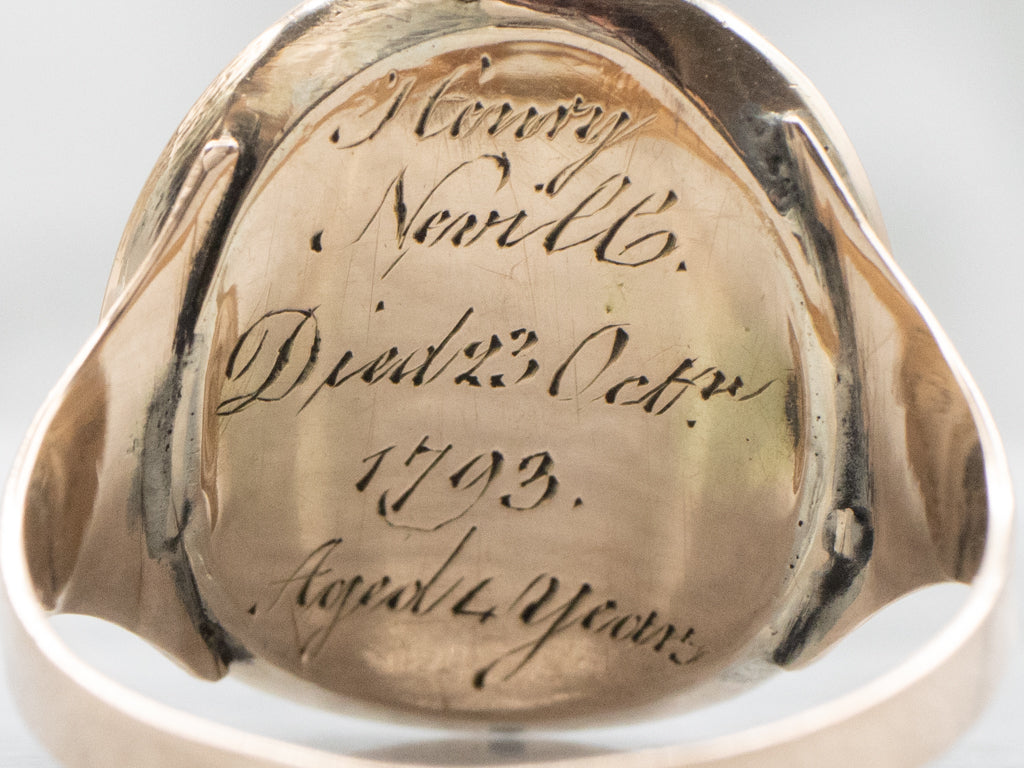 Henry
Nevill.
Died 23 Octbr
1793.
Aged 4 Years